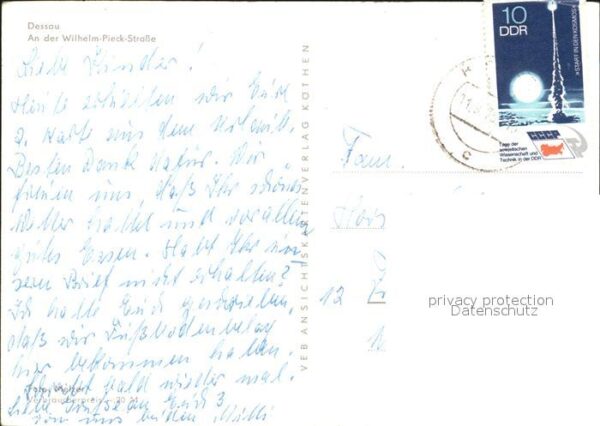 Dessau
An der Wilhelm-Pieck-Straße
Liebe Kinder!
Heute erhielten wir Eure
2. Karte aus dem Urlaub.
Besten Dank dafür. Wir
freuen uns, daß Ihr schönes
Wetter habt und vor allem
gutes Essen. Habt Ihr un-
seren Brief nicht erhalten?
Ich hatte Euch geschrieben,
daß wir Fußbodenbelag
hier bekommen haben.
bald wieder mal.
Liebe Grüße an Euch 3
von uns beiden
Verbraucherpreis
VEB ANSICHTSKARTENVERLAG KÖTHEN
10
DDR
START IN DEN KOSMOS
CCCP
Tage der
sowjetischen
Wissenschaft und
Technik in der DDR
Fam.
12
privacy protection
Datenschutz